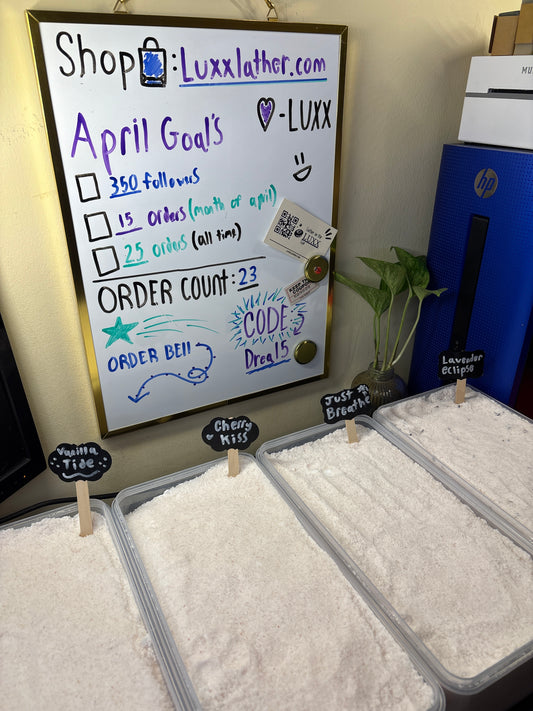 Shop : Luxxlather.com
- LUXX
April Goal's
350 followers
15 orders (month of april)
25 orders (all time)
ORDER COUNT: 23
CODE
Drea15
ORDER BELL
LUXX
hp
Vanilla Tide
Cherry Kiss
Just Breathe
Lavender eclipse